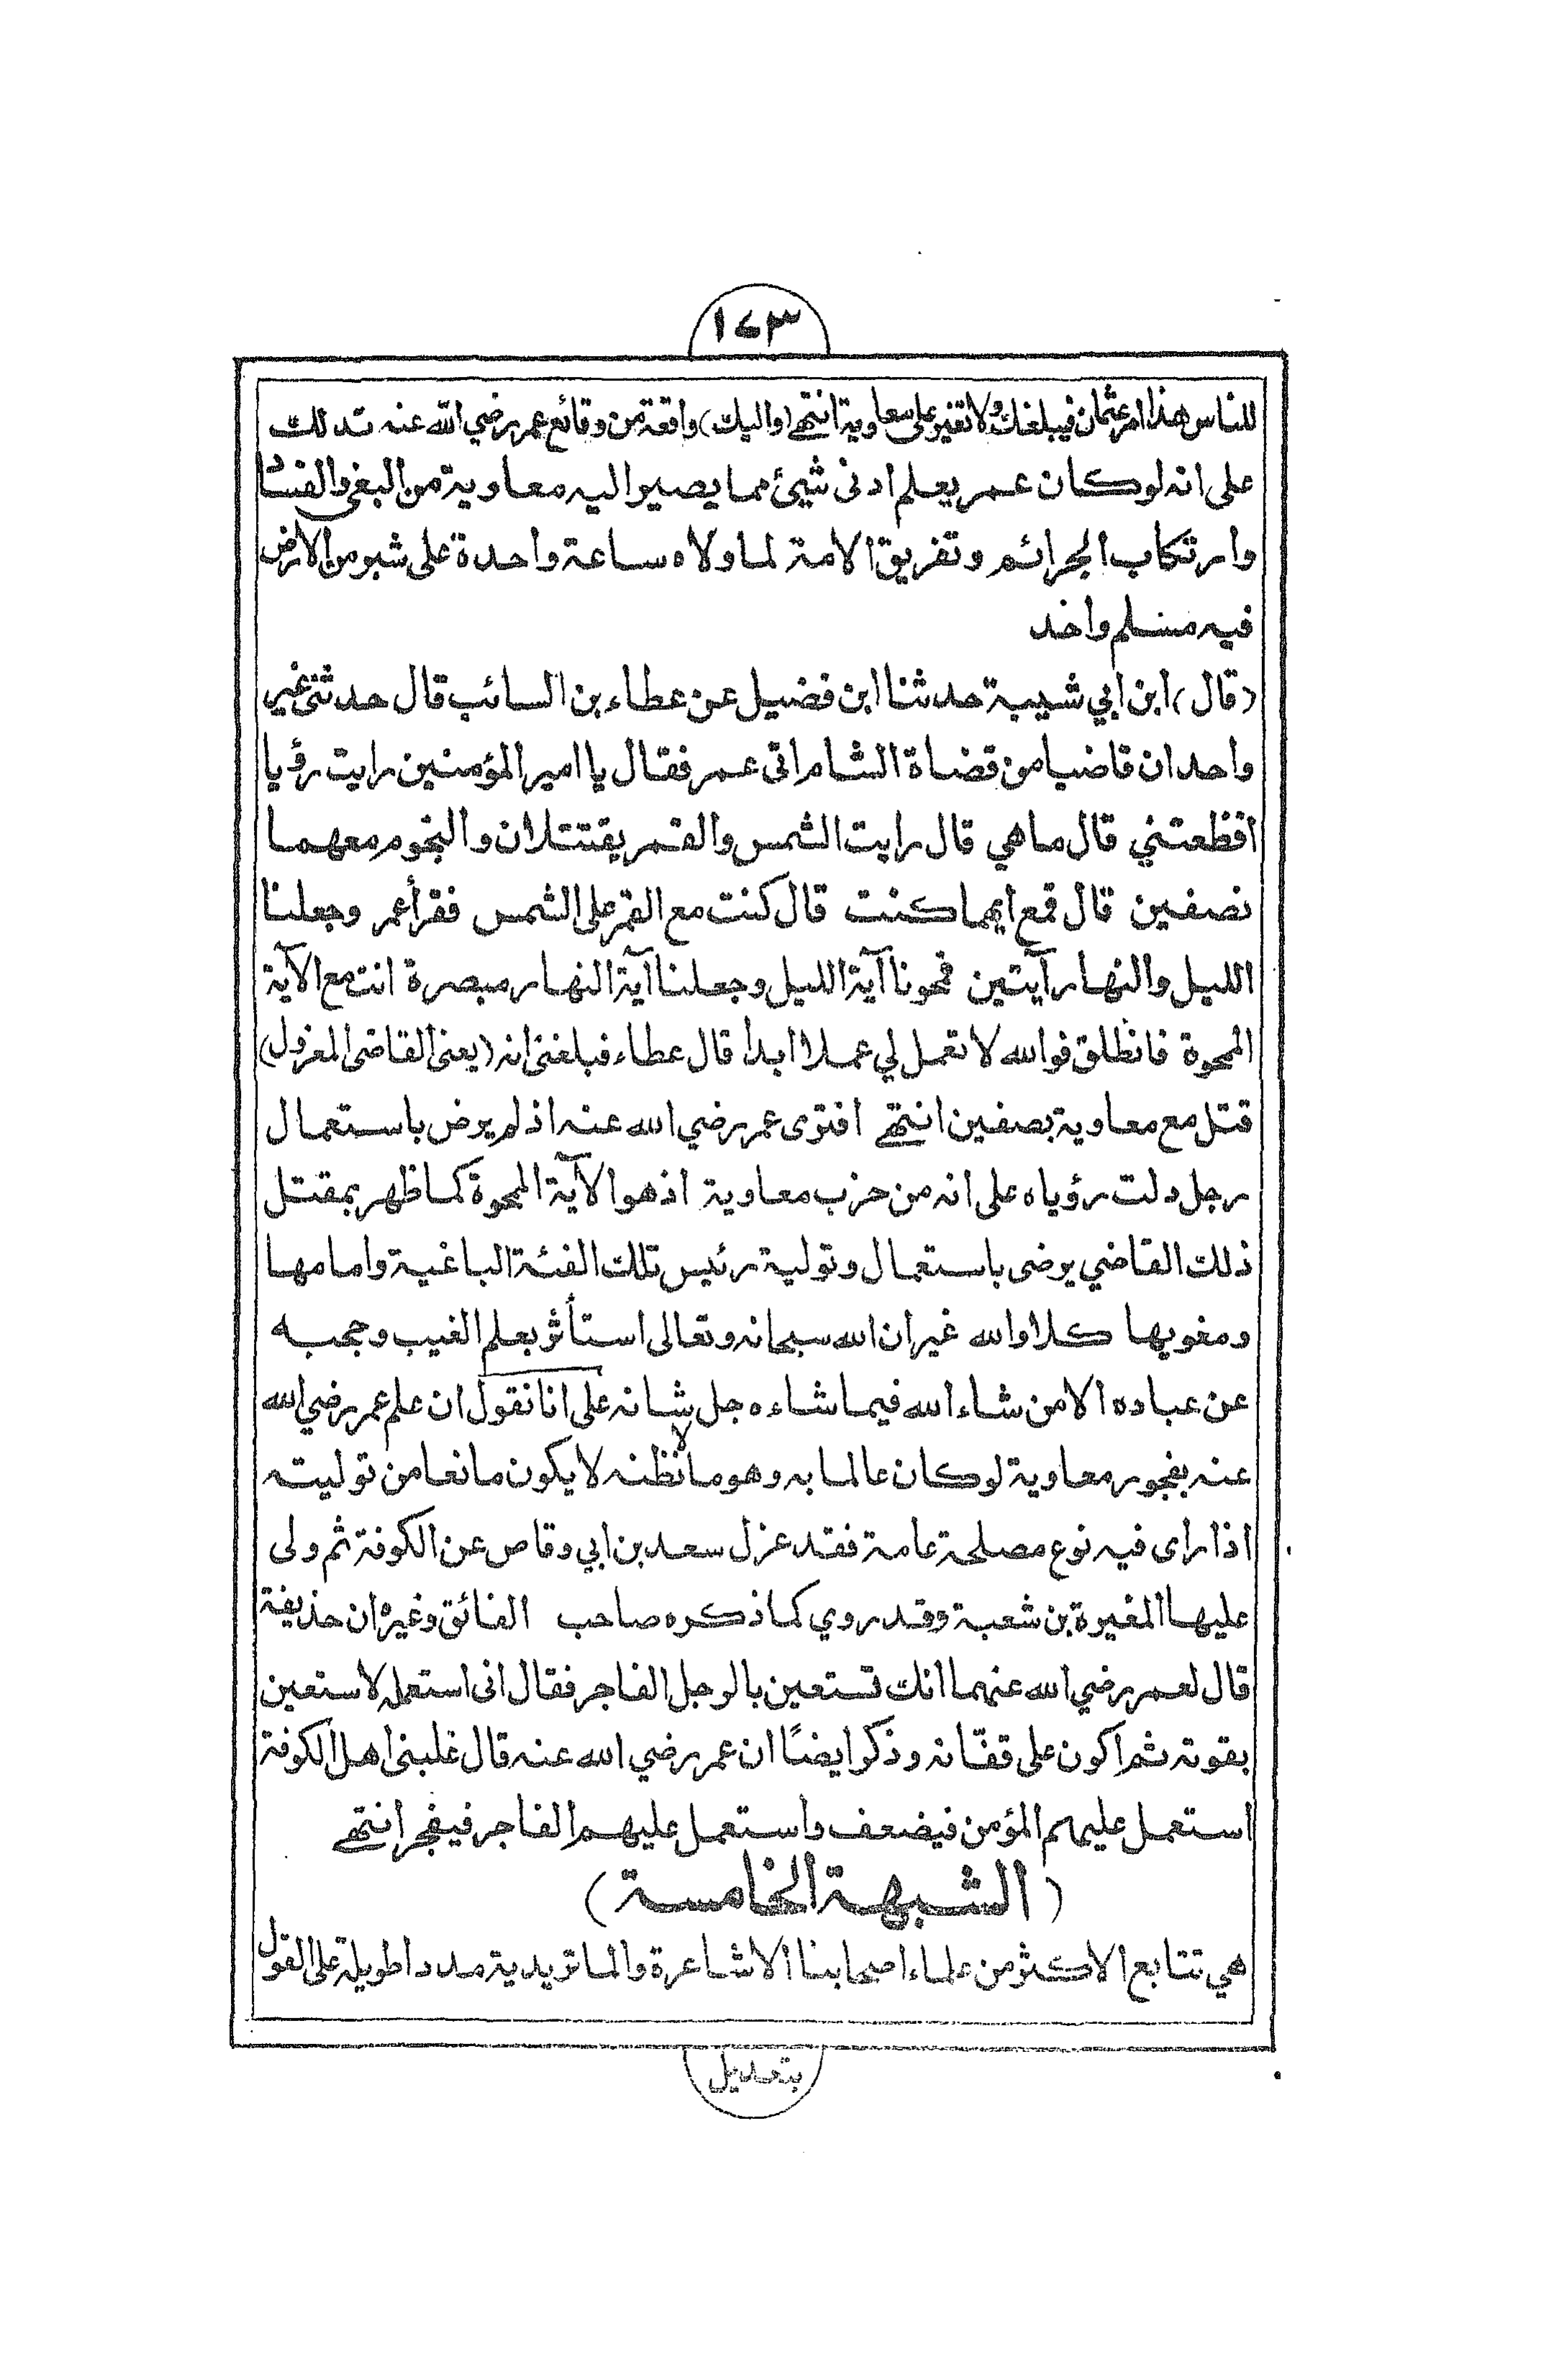 ١٤٣
للناس هذا امر عثمان فيبلغك ولا تغير على معاوية انتهى (واليك) واقعة من وقائع عمر رضي الله عنه تدلك
على انه لو كان عمر يعلم ادنى شيئ مما يصير اليه معاوية من البغى والفساد
وارتكاب الجرائم وتفريق الامة لما ولاه ساعة واحدة على شبر من الارض
فيه مسلم واحد
(قال) ابن ابي شيبة حدثنا ابن فضيل عن عطاء بن السائب قال حدثنى غير
واحد ان قاضيا من قضاة الشام اتى عمر فقال يا امير المؤمنين رايت رؤيا
افظعتني قال ما هي قال رايت الشمس والقمر يقتتلان والنجوم معهما
نصفين قال فمع ايهما كنت قال كنت مع القمر على الشمس فقرأ عمر وجعلنا
الليل والنهار آيتين فمحونا آية الليل وجعلنا آية النهار مبصرة انت مع الآية
الممحوة فانطلق فوالله لا تعمل لي عملا ابدا قال عطاء فبلغنى انه (يعنى القاضى المعزول)
قتل مع معاوية بصفين انتهى افترى عمر رضي الله عنه اذ لم يرض باستعمال
رجل دلت رؤياه على انه من حزب معاوية اذ هو الآية الممحوة كما ظهر بمقتل
ذلك القاضي يرضى باستعمال وتولية رئيس تلك الفئة الباغية وامامها
ومغويها كلا والله غير ان الله سبحانه وتعالى استأثر بعلم الغيب وحجبه
عن عباده الا من شاء الله فيما شاءه جل شانه على انا نقول ان علم عمر رضي الله
عنه بفجور معاوية لو كان عالما به وهو ما لا نظنه لا يكون مانعا من توليته
اذا راى فيه نوع مصلحة عامة فقد عزل سعد بن ابي وقاص عن الكوفة ثم ولى
عليها المغيرة بن شعبة وقد روي كما ذكره صاحب الفائق وغيره ان حذيفة
قال لعمر رضي الله عنهما انك تستعين بالرجل الفاجر فقال انى استعمله لاستعين
بقوته ثم اكون على قفّانه وذكر ايضًا ان عمر رضي الله عنه قال غلبنى اهل الكوفة
استعمل عليهم المؤمن فيضعف واستعمل عليهم الفاجر فيفجر انتهى
(الشبهة الخامسة)
هي تتابع الاكثر من علماء اصحابنا الاشاعرة والماتريدية مددا طويلة على القول
بتعديل